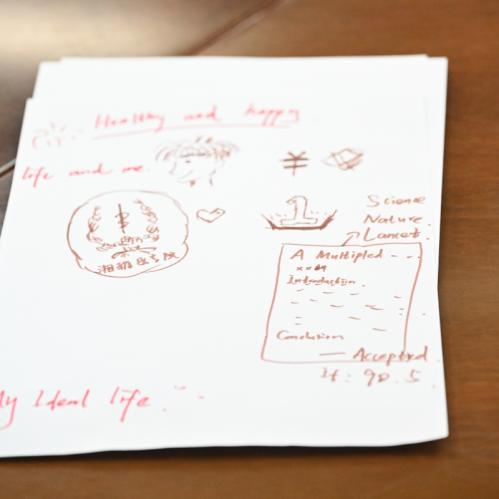 Healthy and happy
life and me.
¥
湘雅医学院
Science
Nature
Lancet.
A Multipled ---
Introduction
Conclusion
— Accepted
If: 90.5
My Ideal life